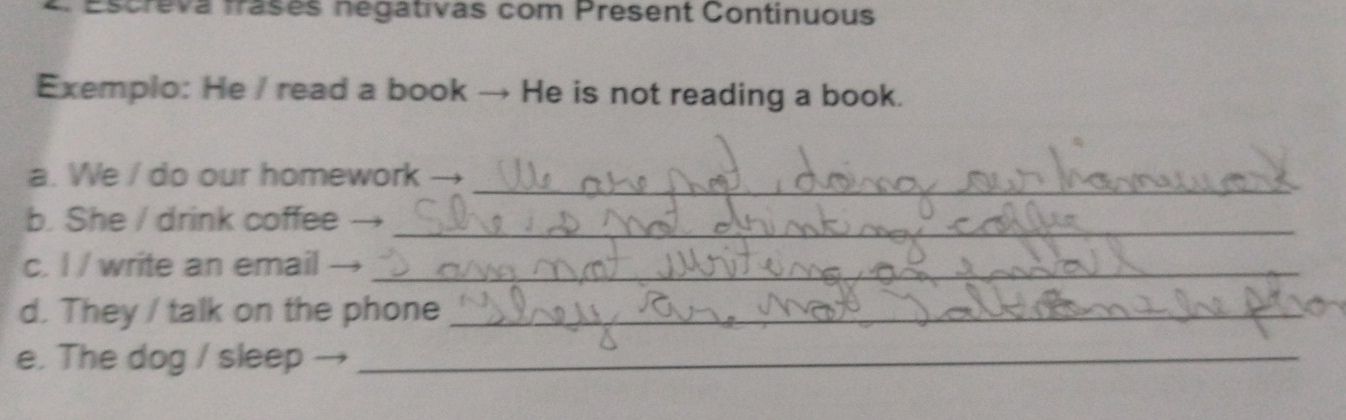 2. Escreva frases negativas com Present Continuous
Exemplo: He / read a book → He is not reading a book.
a. We / do our homework → We are not doing our homework
b. She / drink coffee → She is not drinking coffee
c. I / write an email → I am not writing an email
d. They / talk on the phone They are not on the phon
e. The dog / sleep →